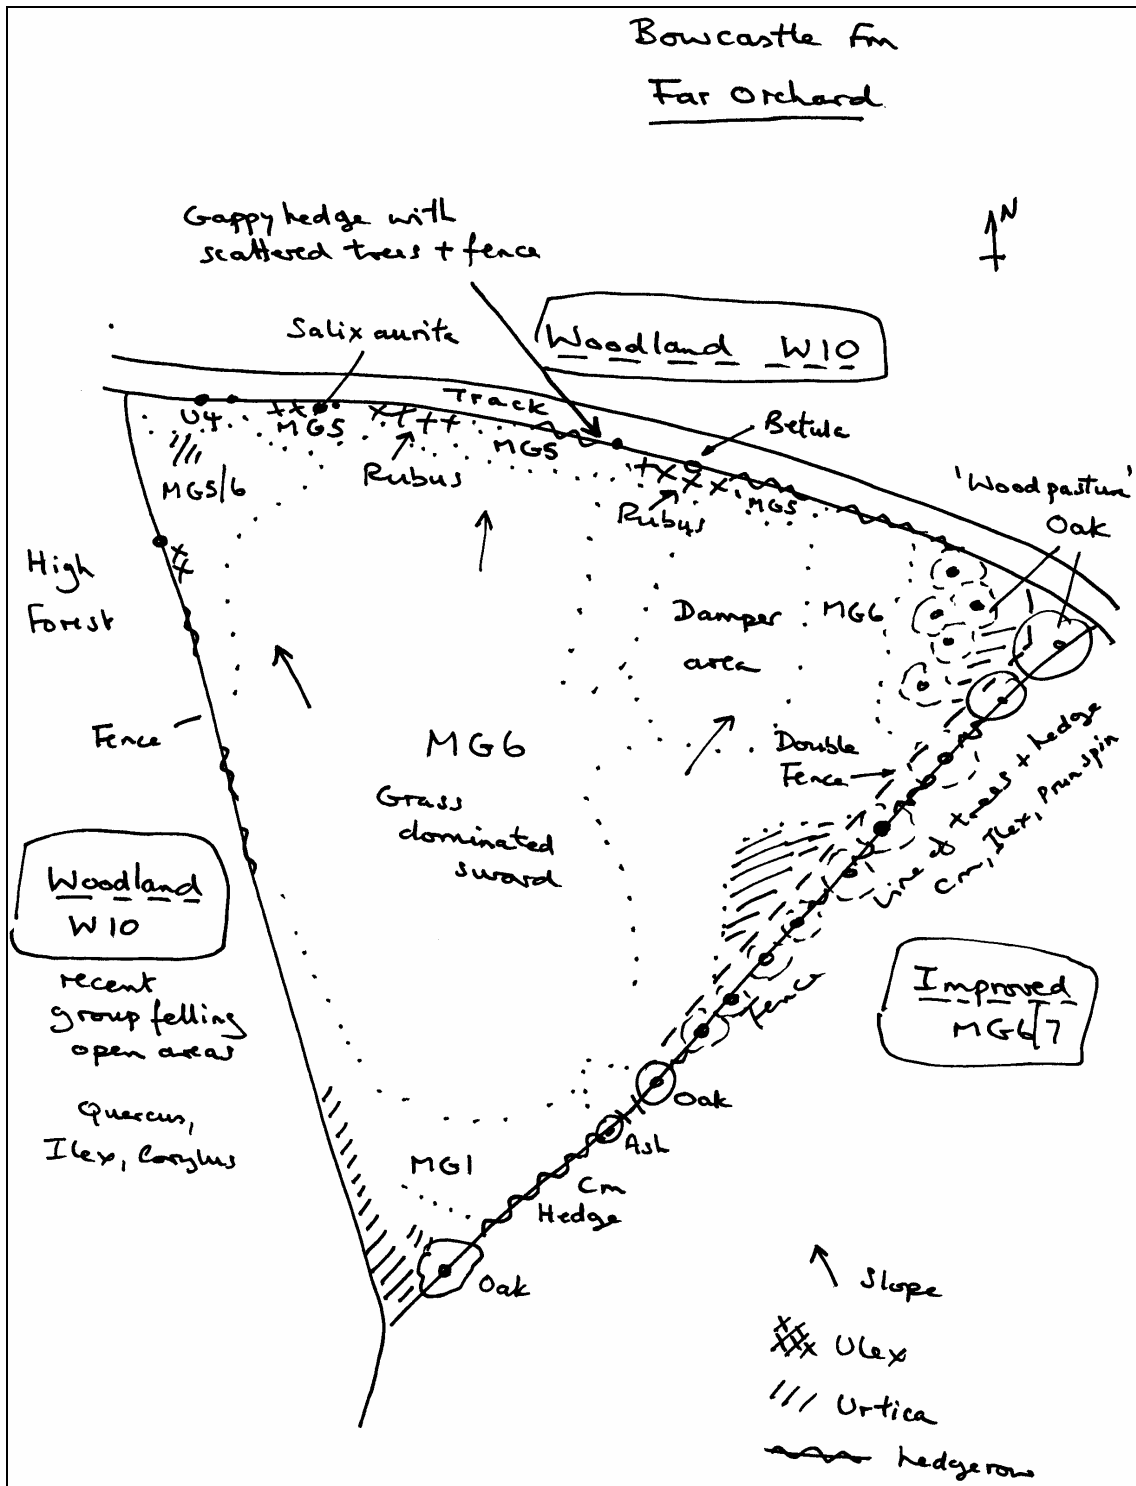 Bowcastle Fm
Far Orchard
N
Gappy hedge with
scattered trees + fence
Woodland W10
Salix aurita
Track
U4
MG5
MG5
Betula
Rubus
MG5/6
Rubus
MG5
'Wood pasture'
Oak
High
Forest
Damper
area
MG6
Fence
MG6
Double
Fence
Grass
dominated
sward
Line of trees + hedge
Cm, Ilex, Prun spin
Woodland
W10
recent
group felling
open areas
Quercus,
Ilex, Corylus
Fence
Improved
MG6/7
Oak
Ash
MG1
Cm
Hedge
Oak
Slope
Ulex
Urtica
hedgerow